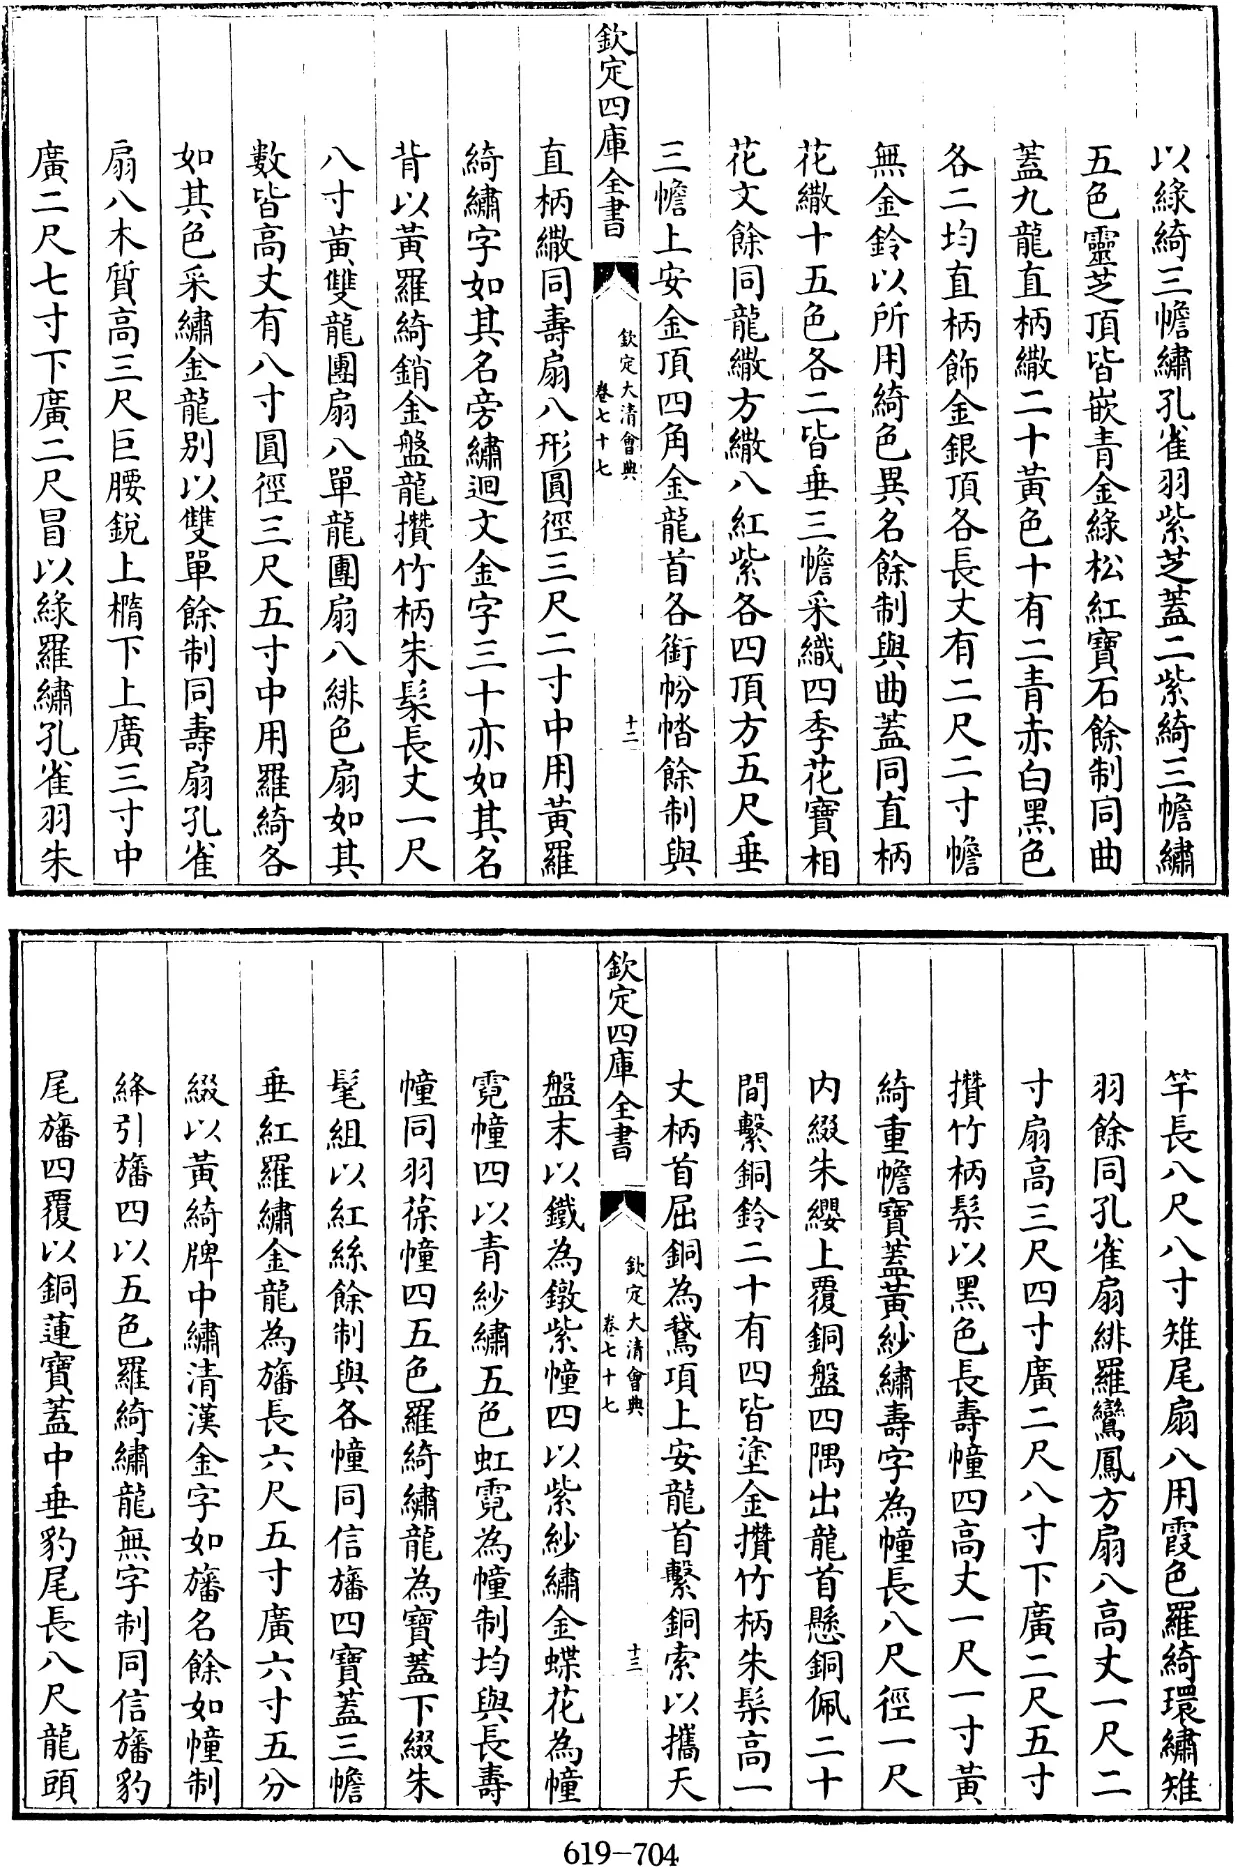 以綠綺三幨繡孔雀羽紫芝蓋二紫綺三幨繡
五色靈芝頂皆嵌青金綠松紅寶石餘制同曲
蓋九龍直柄繖二十黃色十有二青赤白黑色
各二均直柄飾金銀頂各長丈有二尺二寸幨
無金鈴以所用綺色異名餘制與曲蓋同直柄
花繖十五色各二皆垂三幨采織四季花寶相
花文餘同龍繖方繖八紅紫各四頂方五尺垂
三幨上安金頂四角金龍首各銜帉㡓餘制與
欽定四庫全書
欽定大清會典
卷七十七
十二
直柄繖同壽扇八形圓徑三尺二寸中用黃羅
綺繡字如其名旁繡迴文金字三十亦如其名
背以黃羅綺銷金盤龍攢竹柄朱髹長丈一尺
八寸黃雙龍團扇八單龍團扇八緋色扇如其
數皆高丈有八寸圓徑三尺五寸中用羅綺各
如其色采繡金龍別以雙單餘制同壽扇孔雀
扇八木質高三尺巨腰銳上橢下上廣三寸中
廣二尺七寸下廣二尺冒以綠羅繡孔雀羽朱
竿長八尺八寸雉尾扇八用霞色羅綺環繡雉
羽餘同孔雀扇緋羅鸞鳳方扇八高丈一尺二
寸扇高三尺四寸廣二尺八寸下廣二尺五寸
攢竹柄髹以黑色長壽幢四高丈一尺一寸黃
綺重幨寶蓋黃紗繡壽字為幢長八尺徑一尺
內綴朱纓上覆銅盤四隅出龍首懸銅佩二十
間繫銅鈴二十有四皆塗金攢竹柄朱髹高一
丈柄首屈銅為鵞項上安龍首繫銅索以攜天
欽定四庫全書
欽定大清會典
卷七十七
十三
盤末以鐵為鐓紫幢四以紫紗繡金蝶花為幢
霓幢四以青紗繡五色虹霓為幢制均與長壽
幢同羽葆幢四五色羅綺繡龍為寶蓋下綴朱
髦組以紅絲餘制與各幢同信旛四寶蓋三幨
垂紅羅繡金龍為旛長六尺五寸廣六寸五分
綴以黃綺牌中繡清漢金字如旛名餘如幢制
絳引旛四以五色羅綺繡龍無字制同信旛豹
尾旛四覆以銅蓮寶蓋中垂豹尾長八尺龍頭
619-704